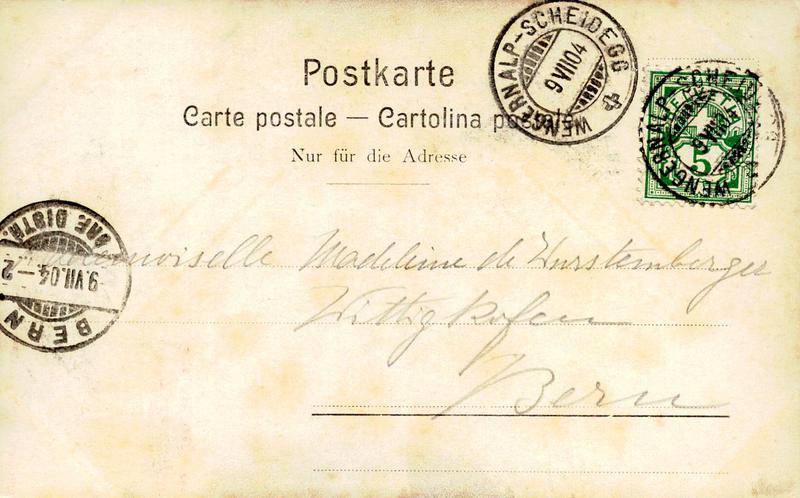 Postkarte
Carte postale — Cartolina postale
Nur für die Adresse
WENGERNALP-SCHEIDEGG
9 VII 04
WENGERNALP-SCHEIDEGG
9 VII 04
HELVETIA
5
BERN
-9.VII.04-2
GARE DISTR.
Mademoiselle Madeleine de Wurstemberger
Wittigkofen
Bern